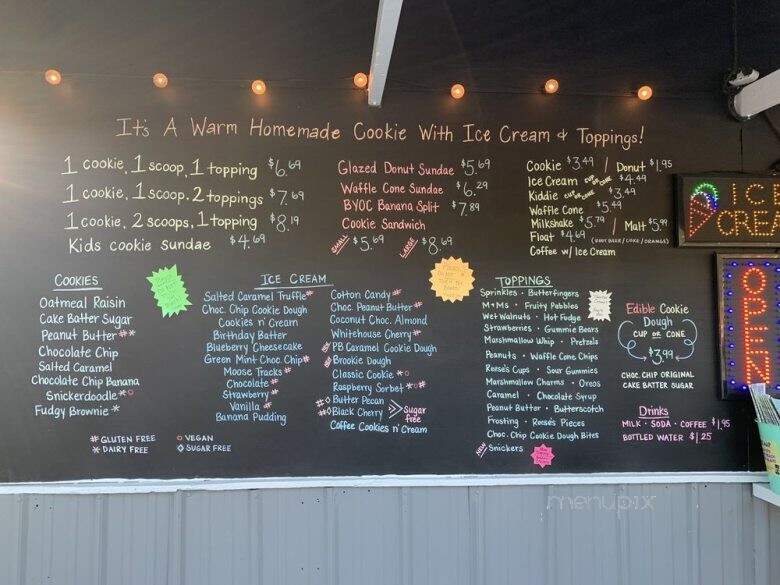 It's A Warm Homemade Cookie With Ice Cream & Toppings!
1 cookie, 1 scoop, 1 topping $6.69
1 cookie, 1 scoop. 2 toppings $7.69
1 cookie, 2 scoops, 1 topping $8.19
Kids cookie sundae $4.69
Glazed Donut Sundae $5.69
Waffle Cone Sundae $6.29
BYOC Banana Split $7.89
Cookie Sandwich
SMALL $5.69 LARGE $8.69
Cookie $3.49 / Donut $1.95
Ice Cream CUP OR CONE $4.49
Kiddie CUP OR CONE $3.49
Waffle Cone $5.49
Milkshake $5.79 / Malt $5.99
Float $4.69 (ROOT BEER / COKE / ORANGE)
Coffee w/ Ice Cream
COOKIES
Oatmeal Raisin
Cake Batter Sugar
Peanut Butter #*
Chocolate Chip
Salted Caramel
Chocolate Chip Banana
Snickerdoodle *○
Fudgy Brownie *
# GLUTEN FREE
* DAIRY FREE
○ VEGAN
◇ SUGAR FREE
ICE CREAM
Salted Caramel Truffle #
Choc. Chip Cookie Dough
Cookies n' Cream
Birthday Batter
Blueberry Cheesecake
Green Mint Choc. Chip #
Moose Tracks #
Chocolate #
Strawberry #
Vanilla #
Banana Pudding
Cotton Candy #
Choc. Peanut Butter #
Coconut Choc. Almond
Whitehouse Cherry #
PB Caramel Cookie Dough
Brookie Dough
Classic Cookie *○
Raspberry Sorbet *○#
#◇ Butter Pecan
#◇ Black Cherry > Sugar free
Coffee Cookies n' Cream
TOPPINGS
Sprinkles • Butterfingers
M+Ms • Fruity Pebbles
Wet Walnuts • Hot Fudge
Strawberries • Gummie Bears
Marshmallow Whip • Pretzels
Peanuts • Waffle Cone Chips
Reese's Cups • Sour Gummies
Marshmallow Charms • Oreos
Caramel • Chocolate Syrup
Peanut Butter • Butterscotch
Frosting • Reese's Pieces
Choc. Chip Cookie Dough Bites
NEW Snickers
Edible Cookie
Dough
CUP OR CONE
$3.99
CHOC. CHIP ORIGINAL
CAKE BATTER SUGAR
Drinks
MILK • SODA • COFFEE $1.95
BOTTLED WATER $1.25
ICE
CREA
OPEN
menupix